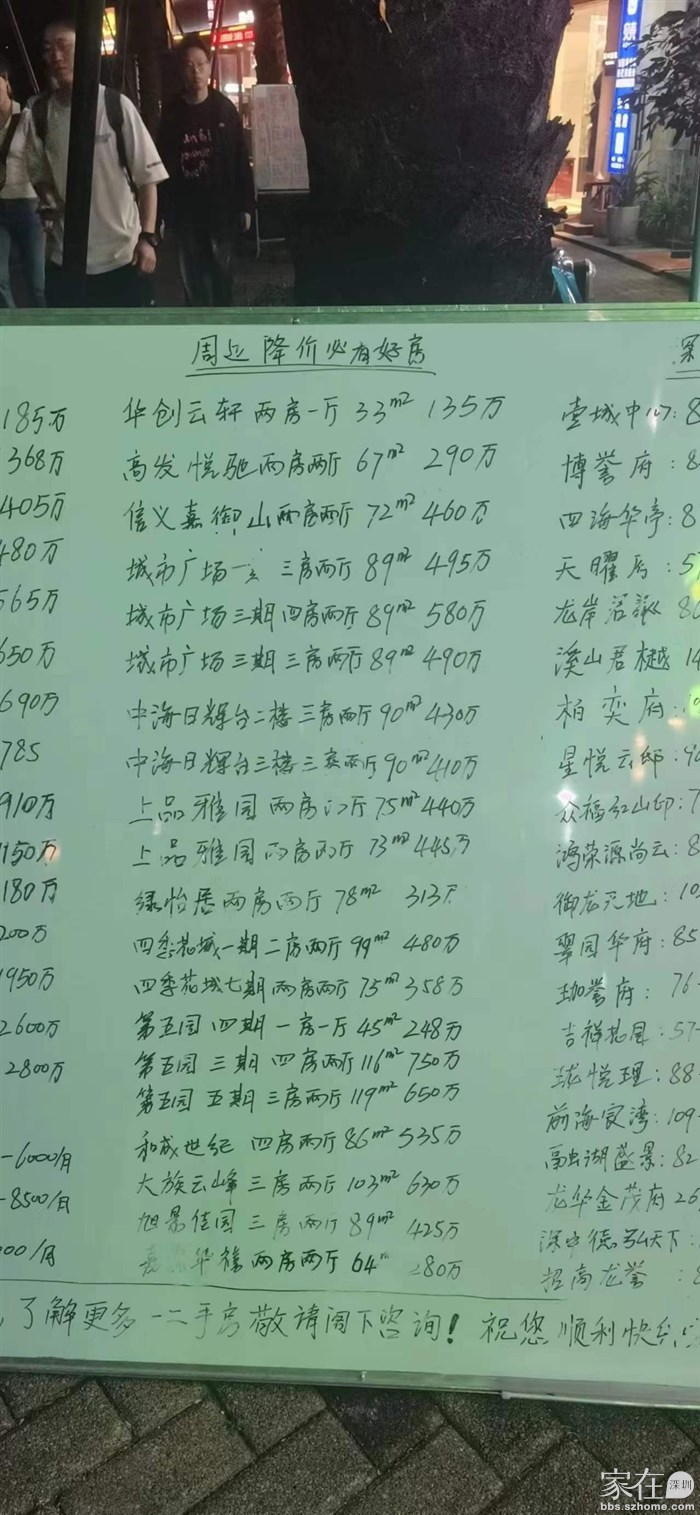 周边 降价必有好房
185万 华创云轩 两房一厅 33m² 135万 壹城中心: 8
368万 高发悦驰两房两厅 67m² 290万 博誉府: 8
405万 信义嘉御山两房两厅 72m² 460万 四海华亭: 8
480万 城市广场一 三房两厅 89m² 495万 天曜 : 5
565万 城市广场三期 四房两厅 89m² 580万 龙岸 86
650万 城市广场三期 三房两厅 89m² 490万 溪山君樾 14
690万 中海日辉台二楼 三房两厅 90m² 430万 柏奕府:
785 中海日辉台三楼 三房两厅 90m² 410万 星悦云邸: 90
910万 上品雅园 两房 厅 75m² 440万 众福红山邸: 7
1150万 上品雅园 两房两厅 73m² 445万 鸿荣源尚云: 8
180万 绿怡居两房两厅 78m² 313万 御龙天地: 10
200万 四季花城一期 二房两厅 99m² 480万 翠园华府: 85
1950万 四季花城七期 两房两厅 75m² 358万 珈誉府: 76-
2600万 第五园 四期 一房一厅 45m² 248万 吉祥 : 57-
2800万 第五园 三期 四房两厅 116m² 750万 球悦理: 88-
第五园 五期 三房两厅 119m² 650万 前海宸湾: 109-
-6000/月 和成世纪 四房两厅 86m² 535万 湖盛景: 82
-8500/月 大族云峰 三房两厅 103m² 630万 龙华金茂府 26
000/月 旭景佳园 三房两厅 89m² 425万 深 德弘天下:
嘉 华禧 两房两厅 64m 280万 招商龙誉 : 8
了解更多一二手房敬请阁下咨询! 祝您顺利快
家在深圳
bbs.szhome.com